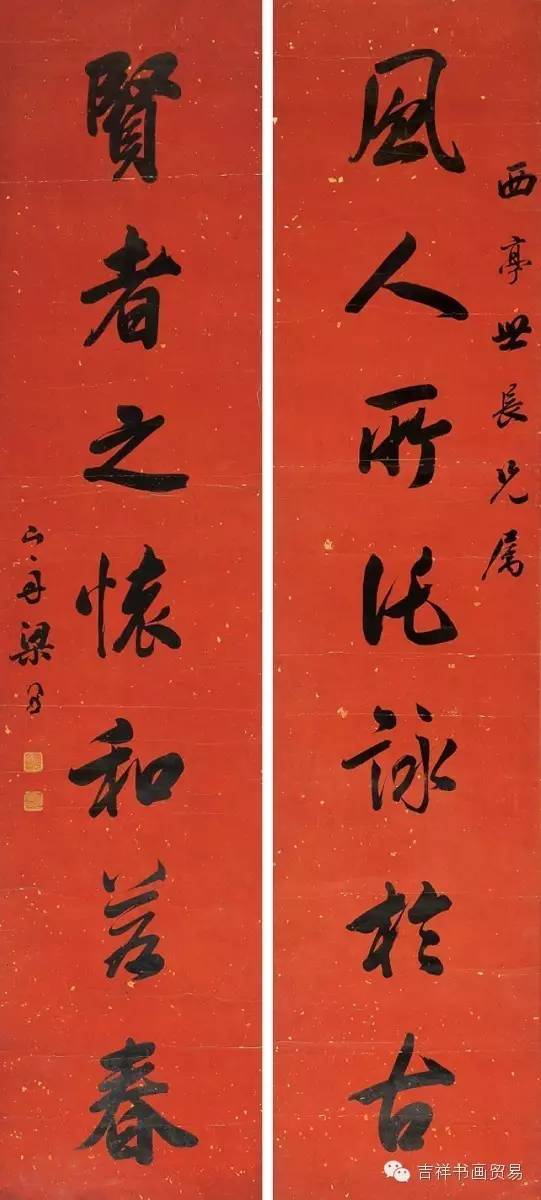 西亭世長兄属
風人所託詠於古
賢者之懷和若春
山舟梁同書
吉祥书画贸易